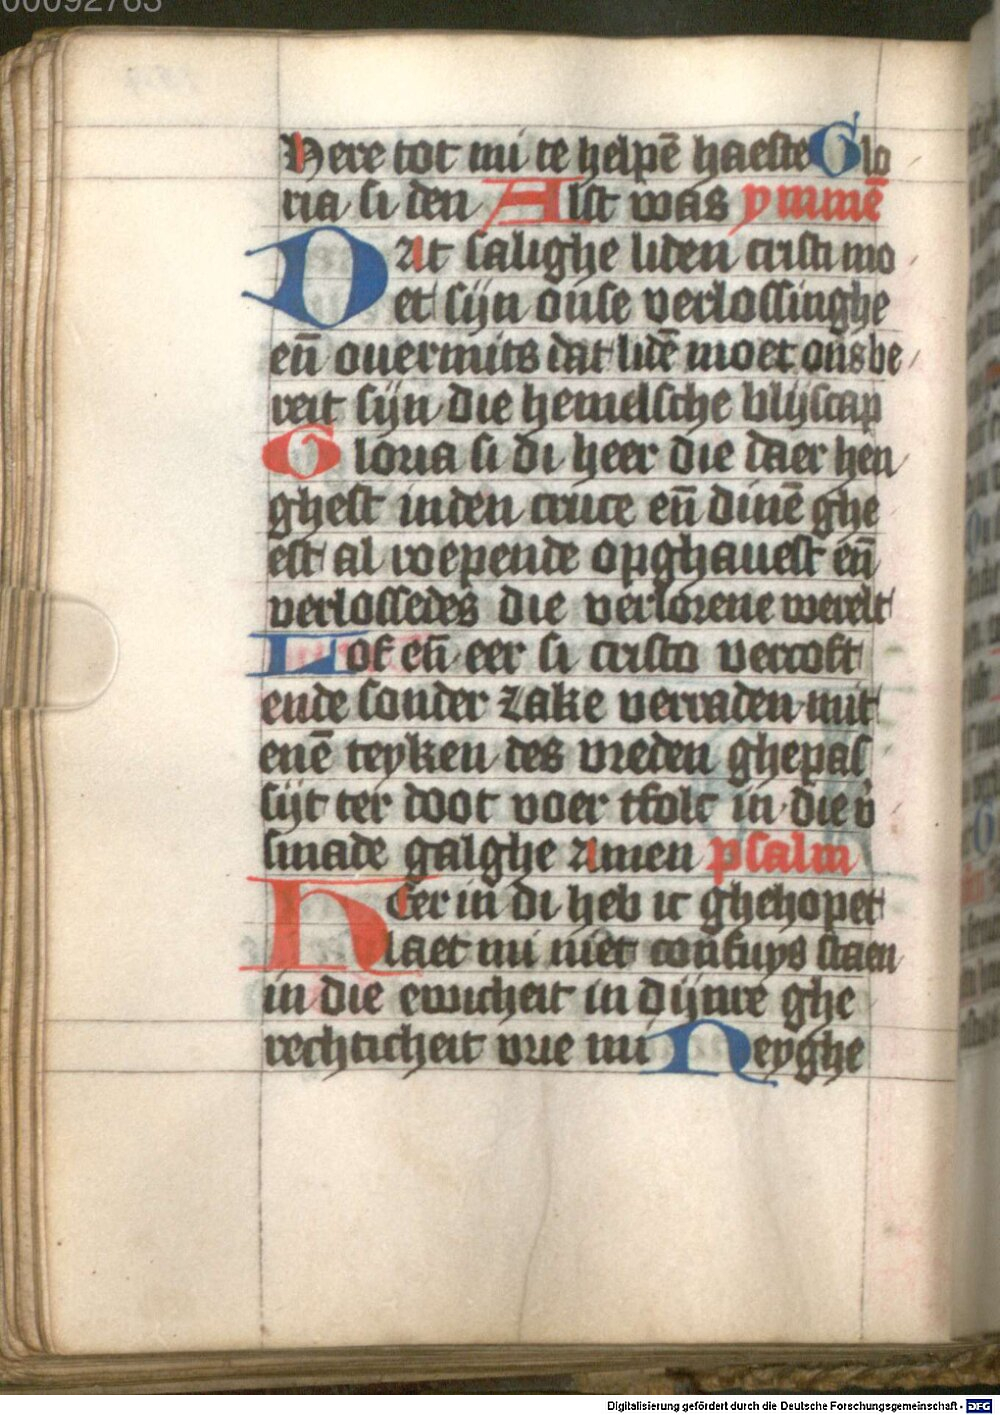 00092763
Here tot mi te helpē haeste Glo
ria si den Alst was ymmē
Dat salighe liden cristi mo
et sijn onse verlossinghe
en̄ ouermits dat lidē moet ons be
reit sijn die hemelsche blijscap
Gloria si di heer die daer hen
ghest inden cruce en̄ dinē ghe
est al roepende opghauest en̄
verlossedes die verlorene werelt
Lof en̄ eer si cristo vercoft
ende sonder zake verraden mit
enē teyken des vreden ghepas
sijt ter doot voer tfolc in die v̄
smade galghe Amen psalm
Heer in di heb ic ghehopet
laet mi niet confuys staen
in die ewicheit in dijnre ghe
rechticheit vrie mi Neyghe
Digitalisierung gefördert durch die Deutsche Forschungsgemeinschaft - DFG